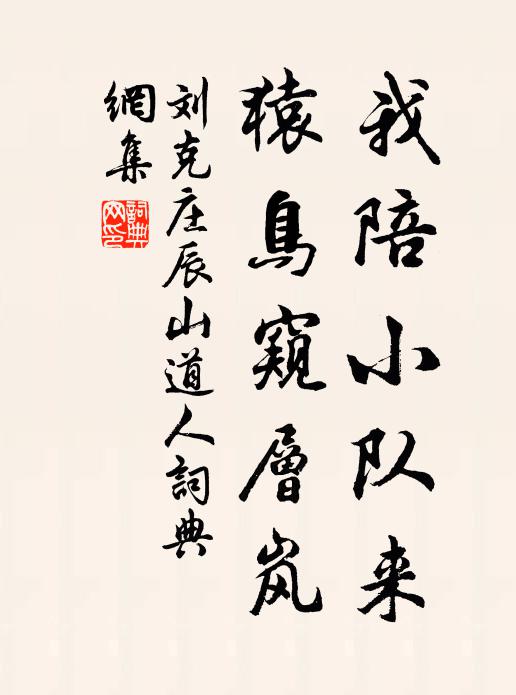 我陪小队来
猿鳥窺層岚
刘克庄辰山道人詞典
網集
詞典网印